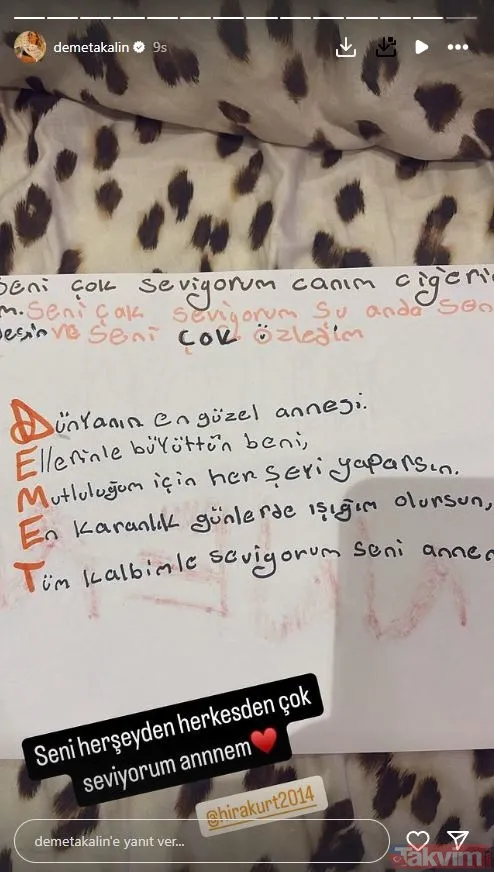 demetakalin 9s
Seni çok seviyorum canım ciğeri
m. Seni çok seviyorum şu anda sen
ve Seni çok özledim
Dünyanın en güzel annesi.
Ellerinle büyüttün beni,
Mutluluğum için her şeyi yaparsın.
En karanlık günlerde ışığım olursun,
Tüm kalbimle seviyorum seni annem
Seni herşeyden herkesden çok
seviyorum annnem❤️
@hirakurt2014
demetakalin'e yanıt ver...
Takvim